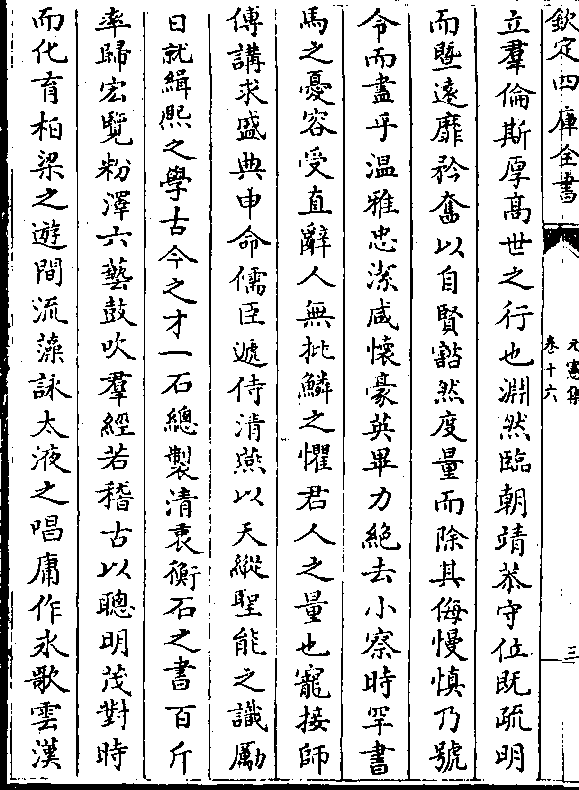 欽定四庫全書
元憲集
卷十六
三
立羣倫斯厚高世之行也淵然臨朝靖恭守位既疏明
而暨遠靡矜奮以自賢豁然度量而除其侮慢慎乃號
令而盡乎溫雅忠潔咸懷豪英畢力絶去小察時罕書
馬之憂容受直辭人無批鱗之懼君人之量也寵接師
傅講求盛典申命儒臣遞侍清燕以天縱聖能之識勵
日就緝熙之學古今之才一石總製清衷衡石之書百斤
率歸宏覽粉澤六藝鼓吹羣經若稽古以聰明茂對時
而化育柏梁之遊間流藻詠太液之唱庸作永歌雲漢